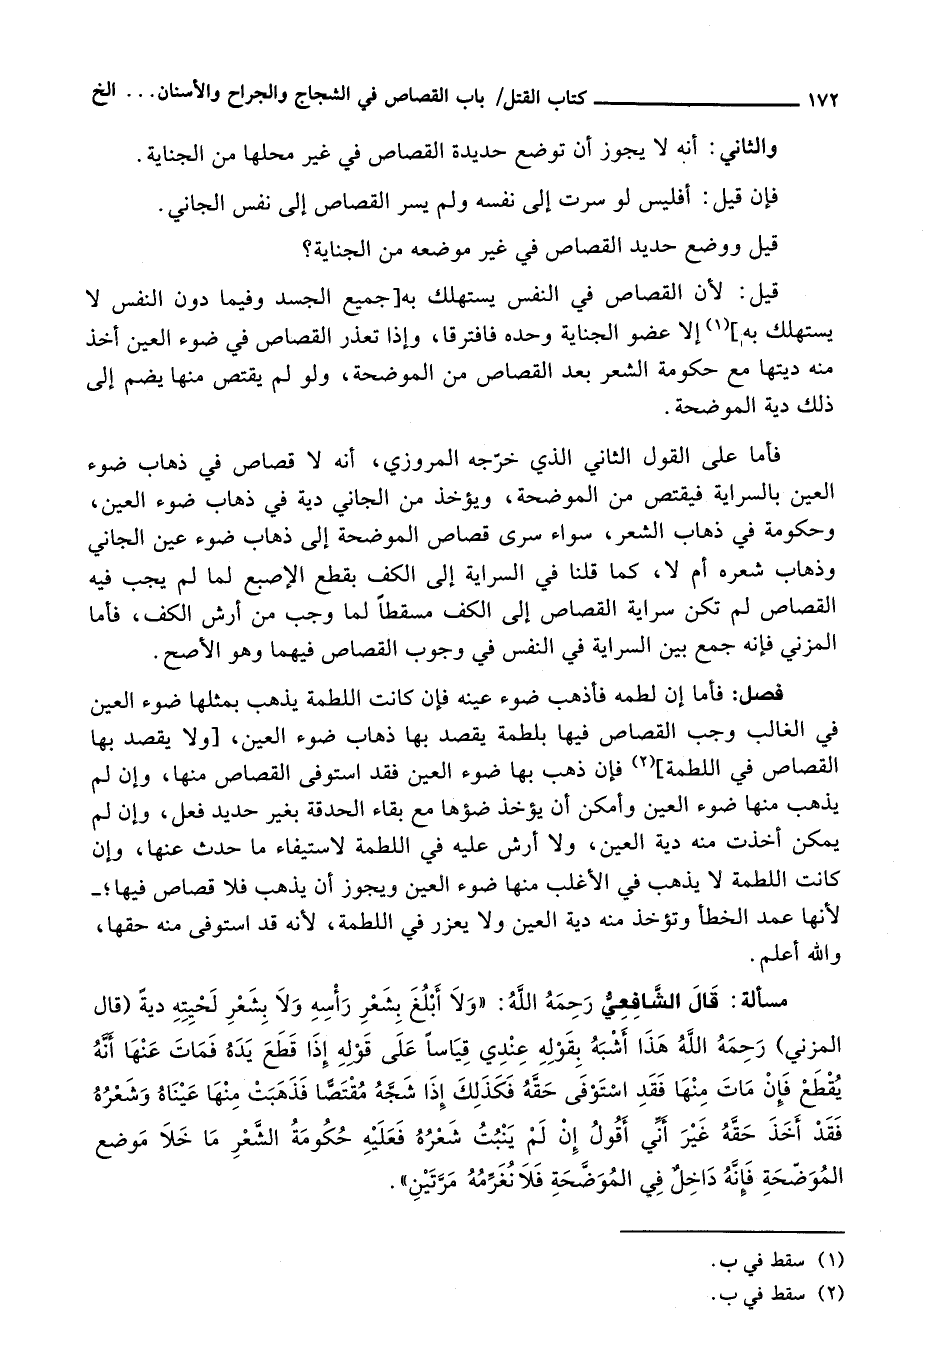 ١٧٢ ــــــــــــــــــــ كتاب القتل/ باب القصاص في الشجاج والجراح والأسنان... الخ
والثاني: أنه لا يجوز أن توضع حديدة القصاص في غير محلها من الجناية.
فإن قيل: أفليس لو سرت إلى نفسه ولم يسر القصاص إلى نفس الجاني.
قيل ووضع حديد القصاص في غير موضعه من الجناية؟
قيل: لأن القصاص في النفس يستهلك به[جميع الجسد وفيما دون النفس لا
يستهلك به](١) إلا عضو الجناية وحده فافترقا، وإذا تعذر القصاص في ضوء العين أخذ
منه ديتها مع حكومة الشعر بعد القصاص من الموضحة، ولو لم يقتص منها يضم إلى
ذلك دية الموضحة.
فأما على القول الثاني الذي خرّجه المروزي، أنه لا قصاص في ذهاب ضوء
العين بالسراية فيقتص من الموضحة، ويؤخذ من الجاني دية في ذهاب ضوء العين،
وحكومة في ذهاب الشعر، سواء سرى قصاص الموضحة إلى ذهاب ضوء عين الجاني
وذهاب شعره أم لا، كما قلنا في السراية إلى الكف بقطع الإصبع لما لم يجب فيه
القصاص لم تكن سراية القصاص إلى الكف مسقطاً لما وجب من أرش الكف، فأما
المزني فإنه جمع بين السراية في النفس في وجوب القصاص فيهما وهو الأصح.
فصل: فأما إن لطمه فأذهب ضوء عينه فإن كانت اللطمة يذهب بمثلها ضوء العين
في الغالب وجب القصاص فيها بلطمة يقصد بها ذهاب ضوء العين، [ولا يقصد بها
القصاص في اللطمة](٢) فإن ذهب بها ضوء العين فقد استوفى القصاص منها، وإن لم
يذهب منها ضوء العين وأمكن أن يؤخذ ضؤها مع بقاء الحدقة بغير حديد فعل، وإن لم
يمكن أخذت منه دية العين، ولا أرش عليه في اللطمة لاستيفاء ما حدث عنها، وإن
كانت اللطمة لا يذهب في الأغلب منها ضوء العين ويجوز أن يذهب فلا قصاص فيها؛ـ
لأنها عمد الخطأ وتؤخذ منه دية العين ولا يعزر في اللطمة، لأنه قد استوفى منه حقها،
والله أعلم.
مسألة: قَالَ الشَّافِعِيُّ رَحِمَهُ اللَّهُ: «وَلَا أَبْلُغَ بِشَعْرِ رَأْسِهِ وَلَا بِشَعْرِ لَحْيَتِهِ ديةً (قال
المزني) رَحِمَهُ اللَّهُ هَذَا أَشْبَهُ بِقَوْلِهِ عِنْدِي قِيَاساً عَلَى قَوْلِهِ إِذَا قَطَعَ يَدَهُ فَمَاتَ عَنْهَا أَنَّهُ
يُقْطَعُ فَإِنْ مَاتَ مِنْهَا فَقَدِ اسْتَوْفَى حَقَّهُ فَكَذَلِكَ إِذَا شَجَّهُ مُقْتَصًّا فَذَهَبَتْ مِنْهَا عَيْنَاهُ وَشَعْرُهُ
فَقَدْ أَخَذَ حَقَّهُ غَيْرَ أَنِّي أَقُولُ إِنْ لَمْ يَنْبُتْ شَعْرُهُ فَعَلَيْهِ حُكُومَةُ الشَّعْرِ مَا خَلَا مَوضع
المُوَضِّحَةِ فَإِنَّهُ دَاخِلٌ فِي المُوَضَّحَةِ فَلَا نُغَرِّمُهُ مَرَّتَيْنِ».
(١) سقط في ب.
(٢) سقط في ب.